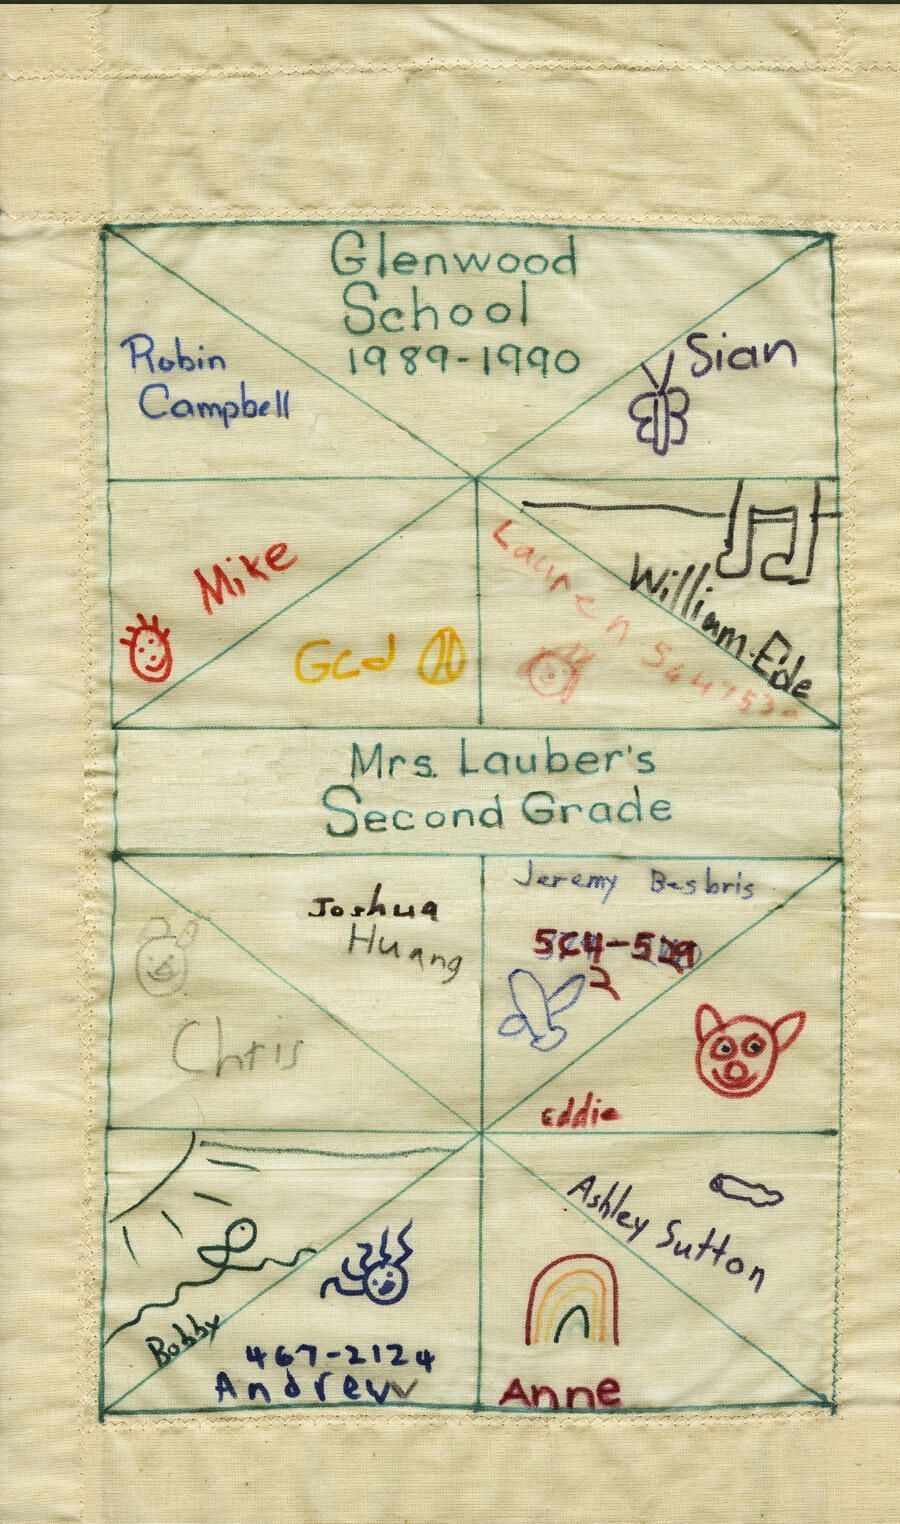 Glenwood
School
1989-1990
Robin
Campbell
Sian
Mike
Gcd
Lauren
William.Ede
Mrs. Lauber's
Second Grade
Joshua
Huang
Chris
Jeremy Besbris
Eddie
Bobby
467-2124
Andrew
Ashley Sutton
Anne